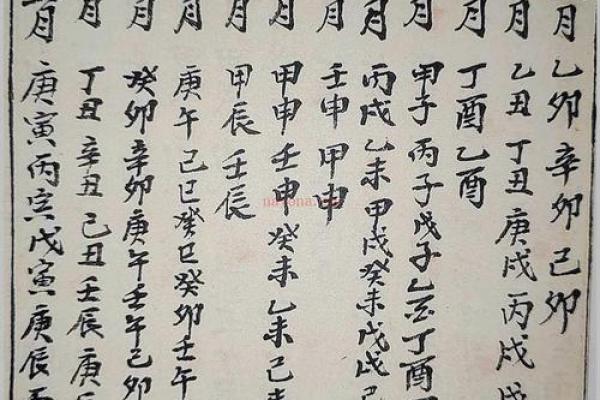 月乙卯辛卯己卯
月乙丑丁丑庚戌丙戌
月丁酉乙酉
月甲子丙子戊子乙亥丁酉
月丙戌乙未甲戌癸未戊戌己
月壬申甲申
月甲申壬申癸未乙未己
月甲辰壬辰
月庚午己巳癸巳癸卯壬午
月癸卯辛卯庚午壬午己卯
月丁丑辛丑己丑壬辰庚
月庚寅丙寅戊寅庚辰